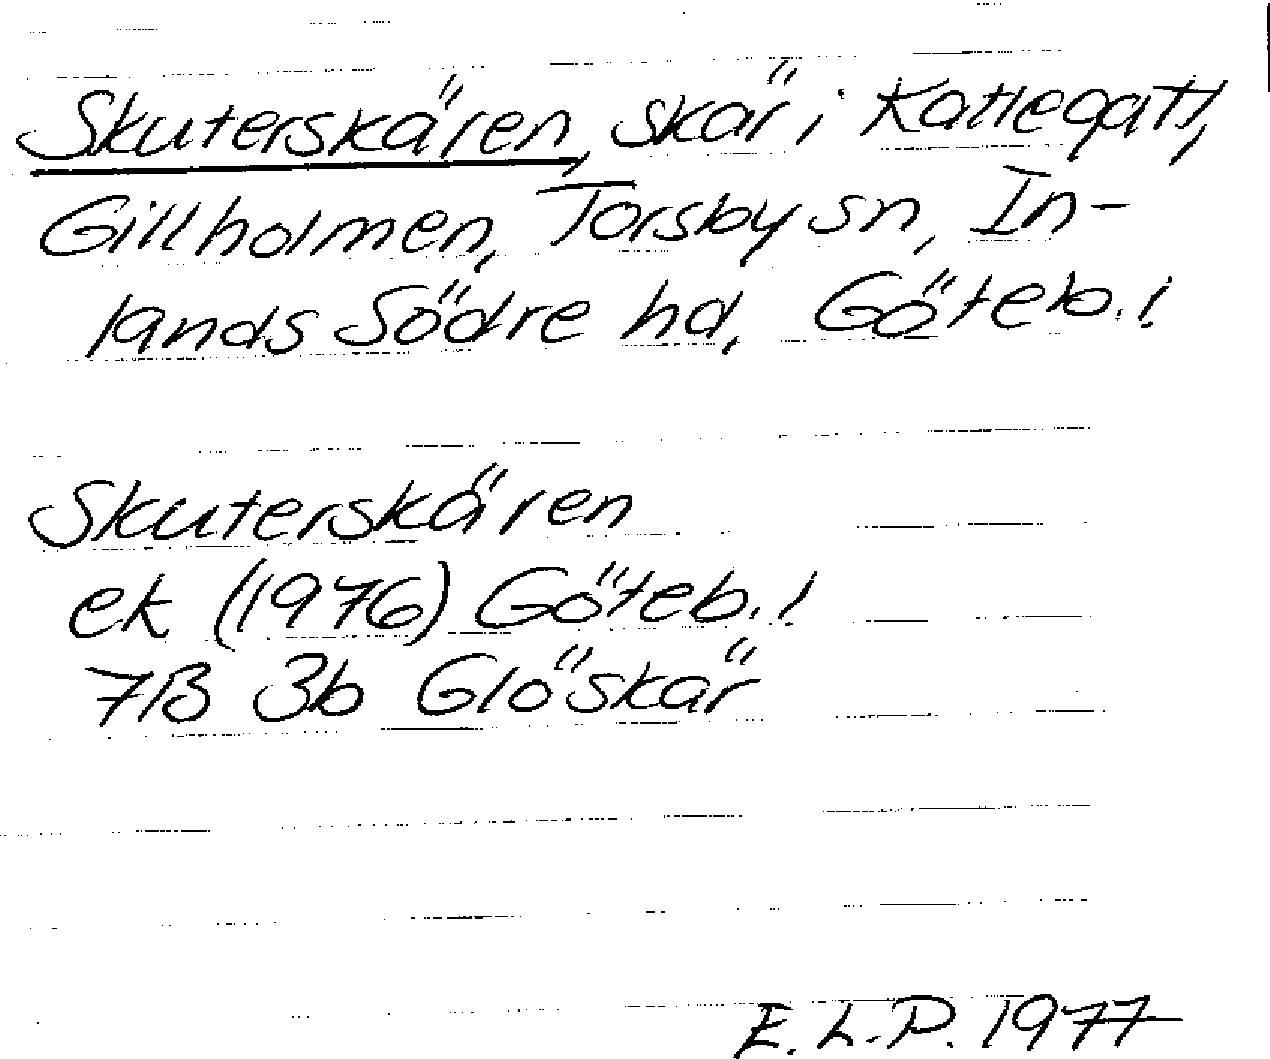 Skuterskären, skär i Kattegatt,
Gillholmen, Torsby sn, In-
lands Södre hd, Göteb.l
Skuterskären
ek (1976) Göteb.l
7B 3b Glöskär
E.L.P. 1977